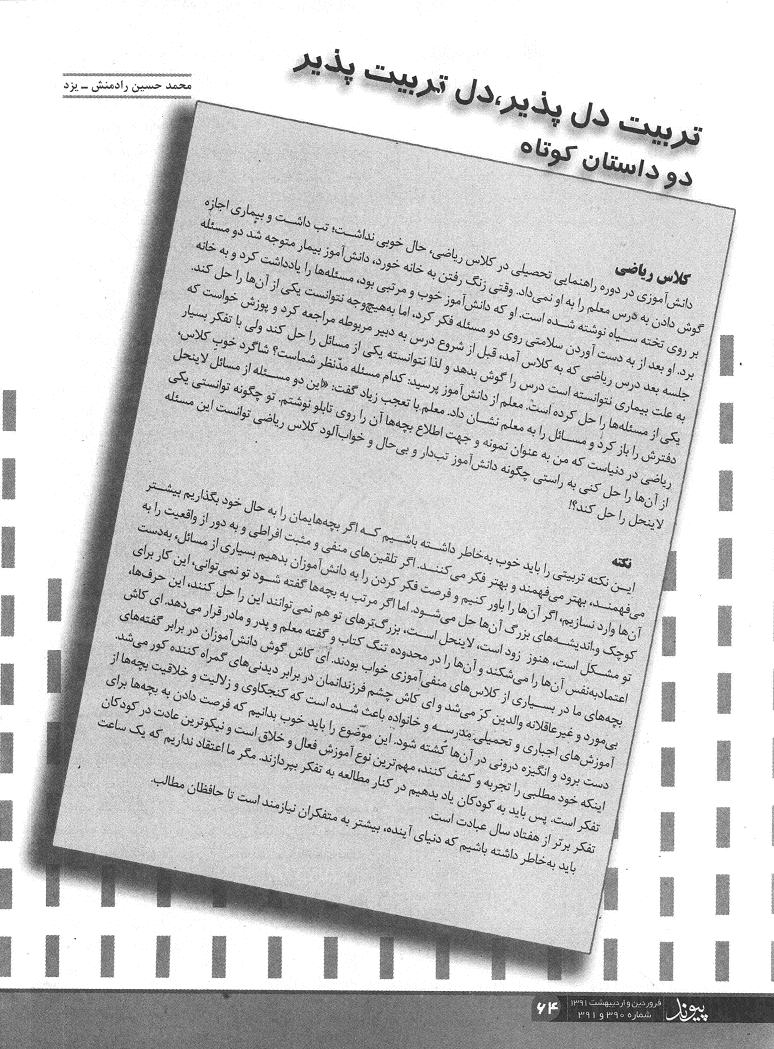 محمد حسین رادمنش ــ یزد
تربیت دل پذیر،دل تربیت پذیر
دو داستان کوتاه
کلاس ریاضی
دانش‌آموزی در دوره راهنمایی تحصیلی در کلاس ریاضی، حال خوبی نداشت؛ تب داشت و بیماری اجازه
گوش دادن به درس معلم را به او نمی‌داد. وقتی زنگ رفتن به خانه خورد، دانش‌آموز بیمار متوجه شد دو مسئله
بر روی تخته سیاه نوشته شده است. او که دانش‌آموز خوب و مرتبی بود، مسئله‌ها را یادداشت کرد و به خانه
برد. او بعد از به دست آوردن سلامتی روی دو مسئله فکر کرد، اما به‌هیچ‌وجه نتوانست یکی از آن‌ها را حل کند.
جلسه بعد درس ریاضی که به کلاس آمد، قبل از شروع درس به دبیر مربوطه مراجعه کرد و پوزش خواست که
به علت بیماری نتوانسته است درس را گوش بدهد و لذا نتوانسته یکی از مسائل را حل کند ولی با تفکر بسیار
یکی از مسئله‌ها را حل کرده است. معلم از دانش‌آموز پرسید: کدام مسئله مدّنظر شماست؟ شاگرد خوب کلاس،
دفترش را باز کرد و مسائل را به معلم نشان داد. معلم با تعجب زیاد گفت: «این دو مسئله از مسائل لاینحل
ریاضی در دنیاست که من به عنوان نمونه و جهت اطلاع بچه‌ها آن را روی تابلو نوشتم. تو چگونه توانستی یکی
از آن‌ها را حل کنی به راستی چگونه دانش‌آموز تب‌دار و بی‌حال و خواب‌آلود کلاس ریاضی توانست این مسئله
لاینحل را حل کند؟!
نکته
ایـن نکته تربیتی را باید خوب به‌خاطر داشته باشیم کـه اگر بچه‌هایمان را به حال خود بگذاریم بیشـتر
می‌فهمنـد، بهتر می‌فهمند و بهتر فکر می‌کننـد. اگر تلقین‌های منفی و مثبت افراطی و به دور از واقعیت را به
آن‌ها وارد نسازیم، اگر آن‌ها را باور کنیم و فرصت فکر کردن را به دانش‌آموزان بدهیم بسیاری از مسائل، به‌دست
کوچک و اندیشه‌های بزرگ آن‌ها حل می‌شـود. اما اگر مرتب به بچه‌ها گفته شـود تو نمی‌توانی، این کار برای
تو مشـکل است، هنوز زود است، لاینحل اسـت، بزرگ‌ترهای تو هم نمی‌توانند این را حل کنند، این حرف‌ها،
اعتمادبه‌نفس آن‌ها را می‌شکند و آن‌ها را در محدوده تنگ کتاب و گفته معلم و پدر و مادر قرار می‌دهد. ای کاش
بچه‌های ما در بسـیاری از کلاس‌های منفی‌آموزی خواب بودند. ای کاش گوش دانش‌آموزان در برابر گفته‌های
بی‌مورد و غیرعاقلانه والدین کر می‌شد و ای کاش چشم فرزندانمان در برابر دیدنی‌های گمراه کننده کور می‌شد.
آموزش‌های اجباری و تحمیلی مدرسـه و خانواده باعث شده است که کنجکاوی و زلالیت و خلاقیت بچه‌ها از
دست برود و انگیزه درونی در آن‌ها کُشته شود. این موضوع را باید خوب بدانیم که فرصت دادن به بچه‌ها برای
اینکه خود مطلبی را تجربه و کشف کنند، مهم‌ترین نوع آموزش فعال و خلاق است و نیکوترین عادت در کودکان
تفکر است. پس باید به کودکان یاد بدهیم در کنار مطالعه به تفکر بپردازند. مگر ما اعتقاد نداریم که یک ساعت
تفکر برتر از هفتاد سال عبادت است.
باید به‌خاطر داشته باشیم که دنیای آینده، بیشتر به متفکران نیازمند است تا حافظان مطالب.
پیوند
فروردین و اردیبهشت ۱۳۹۱
شماره ۳۹۰ و ۳۹۱
۶۴